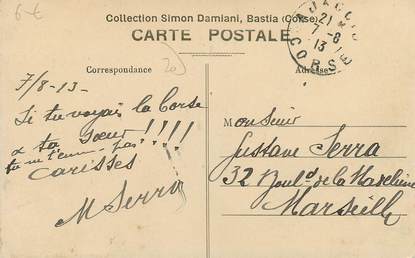 6-€
Collection Simon Damiani, Bastia (Corse)
CARTE POSTALE
AJACCIO
21
7-8
13
CORSE
Correspondance
Adresse
7/8-13-
Si tu voyais la Corse
& ta soeur!!!!
tu m'ennu pas!
Caresses
M Serra
Monsieur
Gustave Serra
32 Boul.d de la Madeleine
Marseille